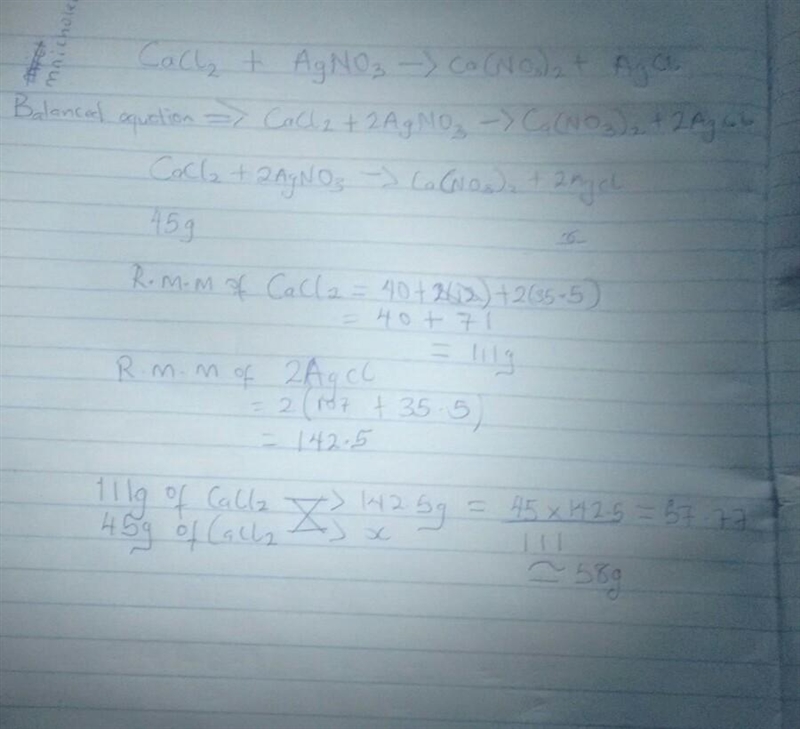 mnichole
CaCl2 + AgNO3 -> Ca(NO3)2 + AgCl
Balanced equation => CaCl2 + 2AgNO3 -> Ca(NO3)2 + 2AgCl
CaCl2 + 2AgNO3 -> Ca(NO3)2 + 2AgCl
45g x
R.M.M of CaCl2 = 40 + 2(35.5)
= 40 + 71
= 111g
R.M.M of 2AgCl
= 2(107 + 35.5)
= 142.5
111g of CaCl2 -> 142.5g = 45 x 142.5 = 57.77
45g of CaCl2 -> x 111
≃ 58g